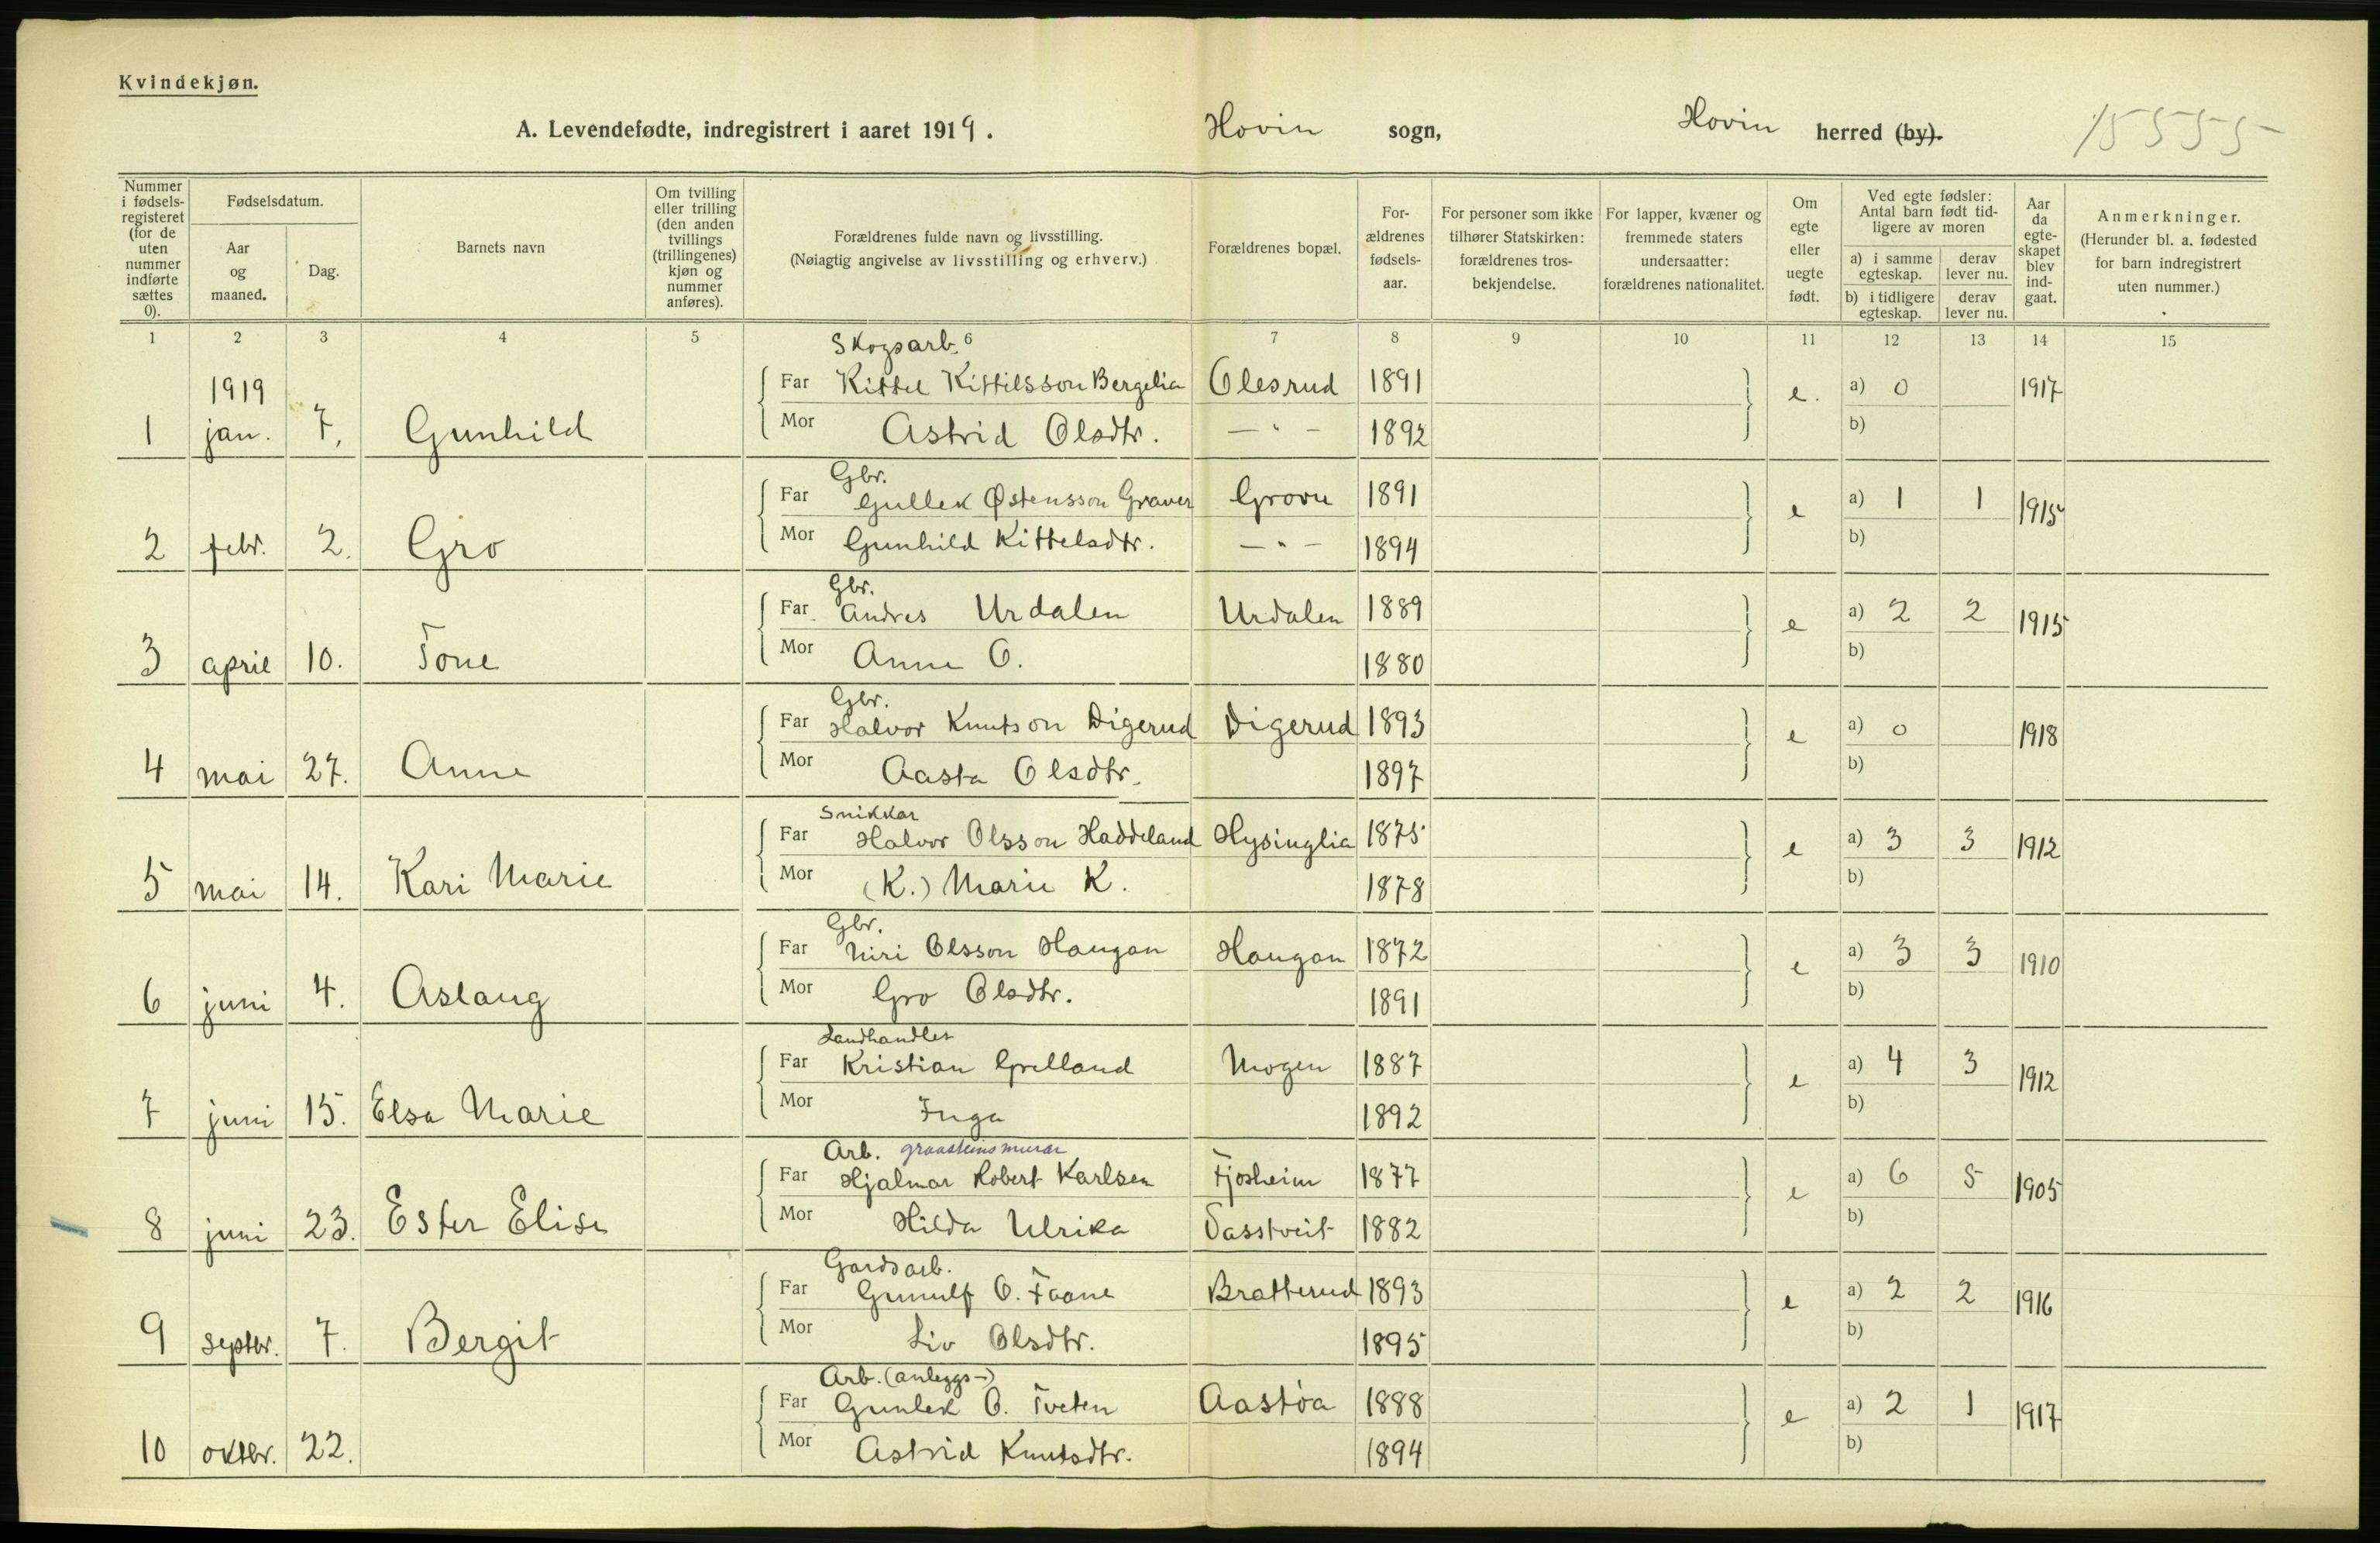 Kvindekjøn.
A. Levendefødte, indregistrert i aaret 1919. Hovin sogn, Hovin herred (by). 15555
Nummer i fødsels-registeret (for de uten nummer indførte sættes 0).
Fødselsdatum.
Aar og maaned.
Dag.
Barnets navn
Om tvilling eller trilling (den anden tvillings (trillingenes) kjøn og nummer anføres).
Forældrenes fulde navn og livsstilling.
(Nøiagtig angivelse av livsstilling og erhverv.)
Forældrenes bopæl.
For-ældrenes fødsels-aar.
For personer som ikke tilhører Statskirken: forældrenes tros-bekjendelse.
For lapper, kvæner og fremmede staters undersaatter: forældrenes nationalitet.
Om egte eller uegte født.
Ved egte fødsler: Antal barn født tid-ligere av moren
a) i samme egteskap. derav lever nu.
b) i tidligere egteskap. derav lever nu.
Aar da egte-skapet blev ind-gaat.
Anmerkninger.
(Herunder bl. a. fødested for barn indregistrert uten nummer.)
1 2 3 4 5 6 7 8 9 10 11 12 13 14 15
Skogsarb.
1919 Far Kittel Kittilsson Bergelia Olesrud 1891 e. a) 0 1917
1 jan. 7, Gunhild Mor Astrid Olsdtr. — " — 1892 b)
Gbr.
Far Gullek Østensson Graver Grovu 1891 e a) 1 1 1915
2 febr. 2. Gro Mor Gunhild Kittelsdtr. — " — 1894 b)
Gbr.
Far Andres Urdalen Urdalen 1889 e a) 2 2 1915
3 april 10. Tone Mor Anne O. 1880 b)
Gbr.
Far Halvor Knutson Digerud Digerud 1893 e a) 0 1918
4 mai 27. Anne Mor Aasta Olsdtr. 1897 b)
Snikkar
Far Halvor Olsson Haddeland Hysinglia 1875 e a) 3 3 1912
5 mai 14. Kari Marie Mor (K.) Marie K. 1878 b)
Gbr.
Far Niri Olsson Haugan Haugan 1872 e a) 3 3 1910
6 juni 4. Aslaug Mor Gro Olsdtr. 1891 b)
Landhandler
Far Kristian Grelland Mogen 1887 e a) 4 3 1912
7 juni 15. Elsa Marie Mor Inga 1892 b)
Arb. graasteinsmurar
Far Hjalmar Robert Karlsen Fjosheim 1877 e a) 6 5 1905
8 juni 23. Ester Elise Mor Hilda Ulrika Vasstveit 1882 b)
Gardsarb.
Far Gunnulf O. Faane Bratterud 1893 e a) 2 2 1916
9 septbr. 7. Bergit Mor Liv Olsdtr. 1895 b)
Arb. (anleggs-)
Far Gunlek O. Tveten Aastøa 1888 e a) 2 1 1917
10 oktbr. 22. Mor Astrid Knutsdtr. 1894 b)